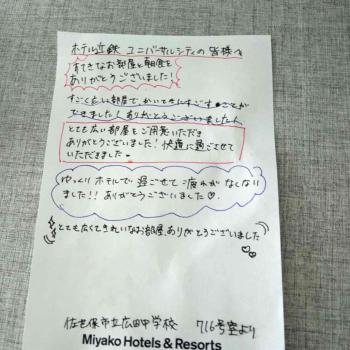 ホテル近鉄 ユニバーサルシティの皆様へ
すてきなお部屋と朝食を
ありがとうございました!
すごく広い部屋で、かいてきにすごすことが
できました!ありがとうございました!
とても広い部屋をご用意いただき
ありがとうございました!快適に過ごさせて
いただきました。
ゆっくりホテルで過ごせて疲れがなくない
ました!!ありがとうございました♡
とても広くてきれいなお部屋、ありがとうございました
佐世保市立広田中学校 716号室より
Miyako Hotels & Resorts